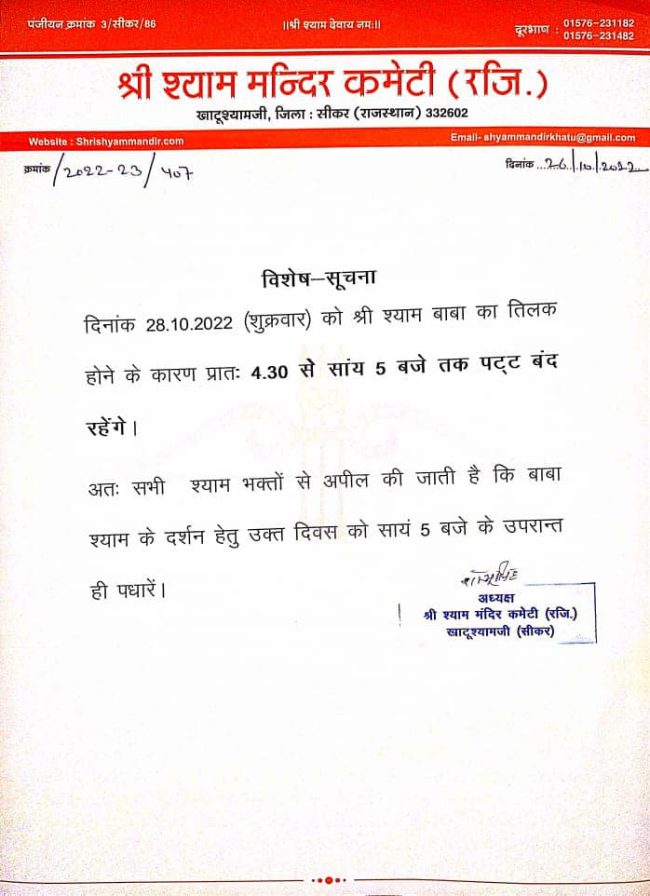 पंजीयन क्रमांक 3/सीकर/86
॥श्री श्याम देवाय नमः॥
दूरभाष : 01576-231182
01576-231482
श्री श्याम मन्दिर कमेटी (रजि.)
खाटूश्यामजी, जिला : सीकर (राजस्थान) 332602
Website : Shrishyammandir.com
Email- shyammandirkhatu@gmail.com
क्रमांक/2022-23/407
दिनांक ...26/10/2022...
विशेष–सूचना
दिनांक 28.10.2022 (शुक्रवार) को श्री श्याम बाबा का तिलक
होने के कारण प्रातः 4.30 से सांय 5 बजे तक पट्ट बंद
रहेंगे।
अतः सभी श्याम भक्तों से अपील की जाती है कि बाबा
श्याम के दर्शन हेतु उक्त दिवस को सायं 5 बजे के उपरान्त
ही पधारें।
अध्यक्ष
श्री श्याम मंदिर कमेटी (रजि.)
खाटूश्यामजी (सीकर)